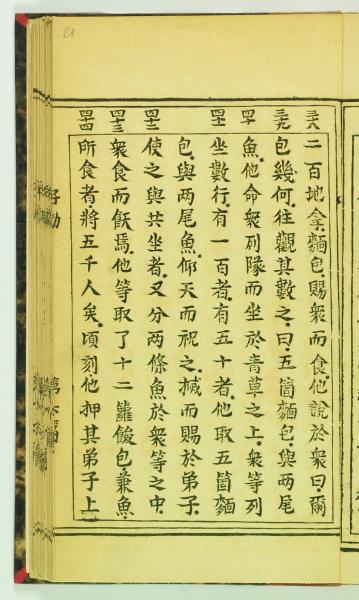 21
三八
三九
四十
四十一
四十二
四十三
四十四
二百地拿麵包.賜衆而食.他說於衆曰.爾
包幾何.往觀其數之.曰.五箇麵包.與两尾
魚.他命衆列隊而坐於青草之上.衆等列
坐數行.有一百者.有五十者.他取五箇麵
包.與两尾魚.仰天而祝之.搣而賜於弟子.
使之與共坐者.又分两條魚於衆等之中.
衆食而飫焉.他等取了十二籮餕包兼魚.
所食者.將五千人矣.頃刻.他押其弟子上